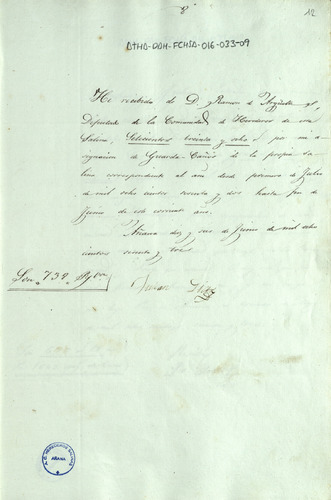 12
ATHA-DAH-FCHSA-016-033-09
He recibido de D. Ramon de
Diputado de la Comunidad de Herederos de esta
Salina, Setecientos treinta y ocho por mi a
signacion de Guarda-Caños de la propia Sa
lina correspondiente al año desde primero de Julio
de mil ocho cientos sesenta y dos hasta fin de
Junio de este corriente año.
Añana diez y seis de Junio de mil ocho
cientos sesenta y tres
Son
A.C. HEREDEROS SALINAS
AÑANA